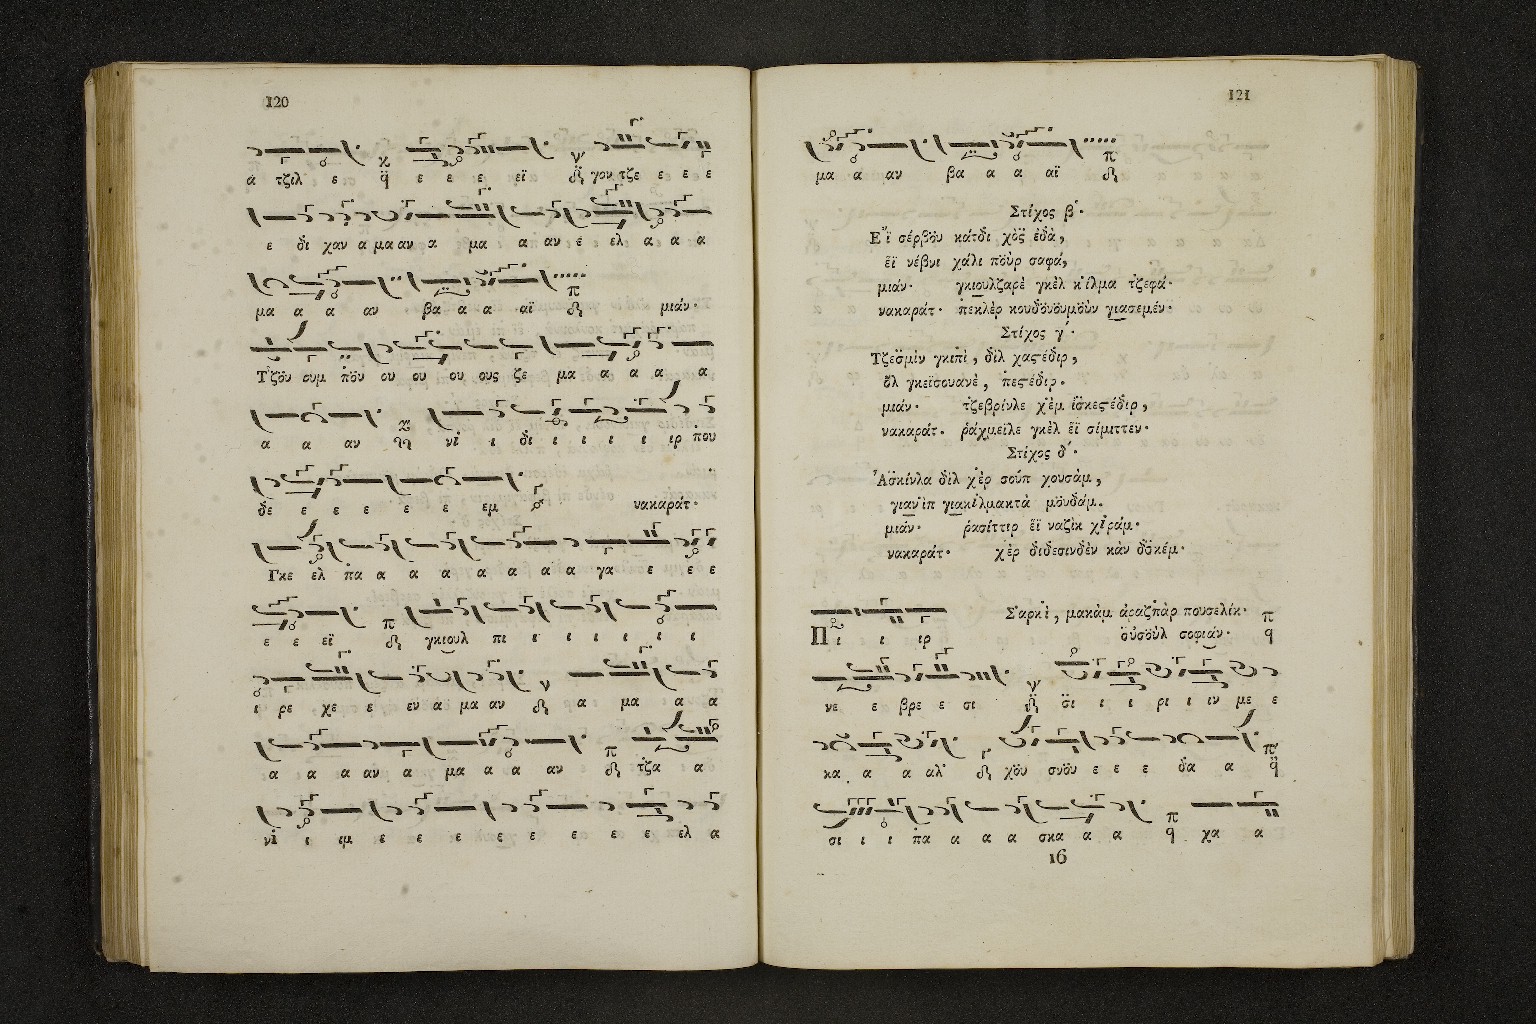 120
ά τζιλ ε ε ε ε εϊ γον τζε ε ε ε
ε δι χαν α μα αν α μα α αν ε ελ α α α
μα α α αν βα α α αϊ μιάν·
Τζόυ ουμ πόυ ου ου ου ους ζε μα α α α α
α α αν νι ι δι ι ι ι ι ιρ που
δε ε ε ε ε ε εμ νακαράτ·
Γκε ελ πα α α α α α α α γα ε ε ε
ε ε εϊ γκιουλ πι ι ι ι ι ι ι
ι ρε χε ε εν α μα αν α μα α α
α α α αν α μα α α αν τζα α
νι ι ιμ ε ε ε ε ε ε ε ε ελ α
121
μα α αν βα α α αϊ
Στίχος β΄.
Εἴϊ σέρβὄυ κάτδι χὸς ἐδὰ,
ἔϊ νέβνι χάλι πὄὺρ σαφά,
μιάν· γκιουλζαρὲ γκὲλ κἱλμα τζεφά·
νακαράτ· πεκλὲρ κουδὄυὄυμὄὺν γιασεμέν·
Στίχος γ΄.
Τζεσμὶν γκιπὶ, δὶλ χαςέδιρ,
ὂλ γκεϊσουανὲ, πεςέδιρ.
μιάν· τζεβρίνλε χὲμ ἱσκεςέδιρ,
νακαράτ. ῥάχμεϊλε γκὲλ ἔϊ σίμιττεν·
Στίχος δ΄.
Ἀσκίνλα δὶλ χὲρ σοῦπ χουσὰμ,
γιανὶπ γιακὶλμακτὰ μὄυδάμ.
μιάν· ῥκσίττιρ ἔϊ ναζὶκ χἱράμ·
νακαράτ· χὲρ διδεσινδὲν κὰν δὄκέμ·
Σαρκὶ, μακὰμ ἀραζπὰρ πουσελίκ·
Πι ι ιρ ὄὐσὄὺλ σοφιάν·
νε ε βρε ε σι σϊ ι ι ρι ι ιν με ε
κα α α αλ χὄυ συὄυ ε ε ε δα α
σι ι ι πα α α α σκα α α χα α
16